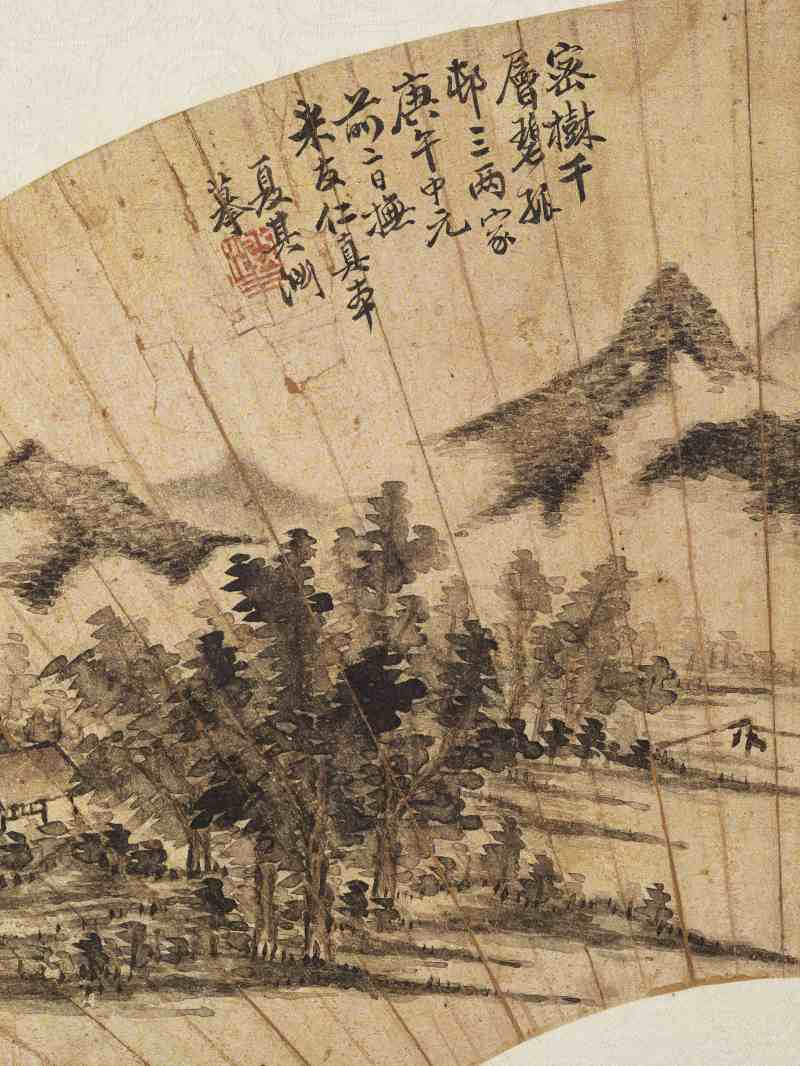 密樹千
層碧孤
邨三兩家
庚午中元
前二日橅
米友仁真本
夏其渊
摹